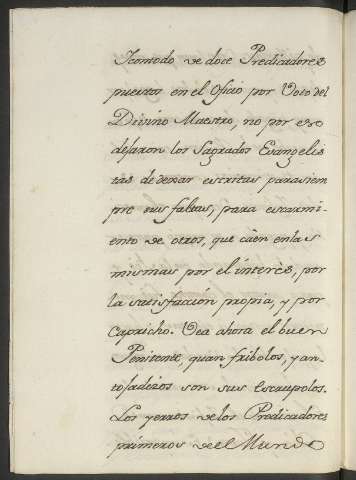 Icomodo de doce Predicadores
puestos en el Oficio por Voto del
Divino Maestro, no por eso
dejaron los Sagrados Evangelis
tas de dexar escritas parasiem
pre sus faltas, para escarmi-
ento de otros, que càen enlas
mismas por el interès, por
la satisfacción propia, y por
Capricho. Vea ahora el buen
Penitente, quan fribolos, y an-
tojadizos son sus Escrupolos.
Los yerros delos Predicadores
primeros de el Mundo